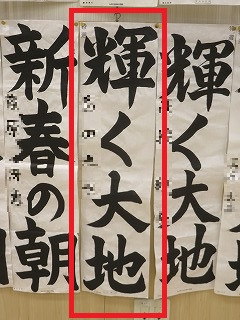 輝く大地
輝く大地
新春の朝